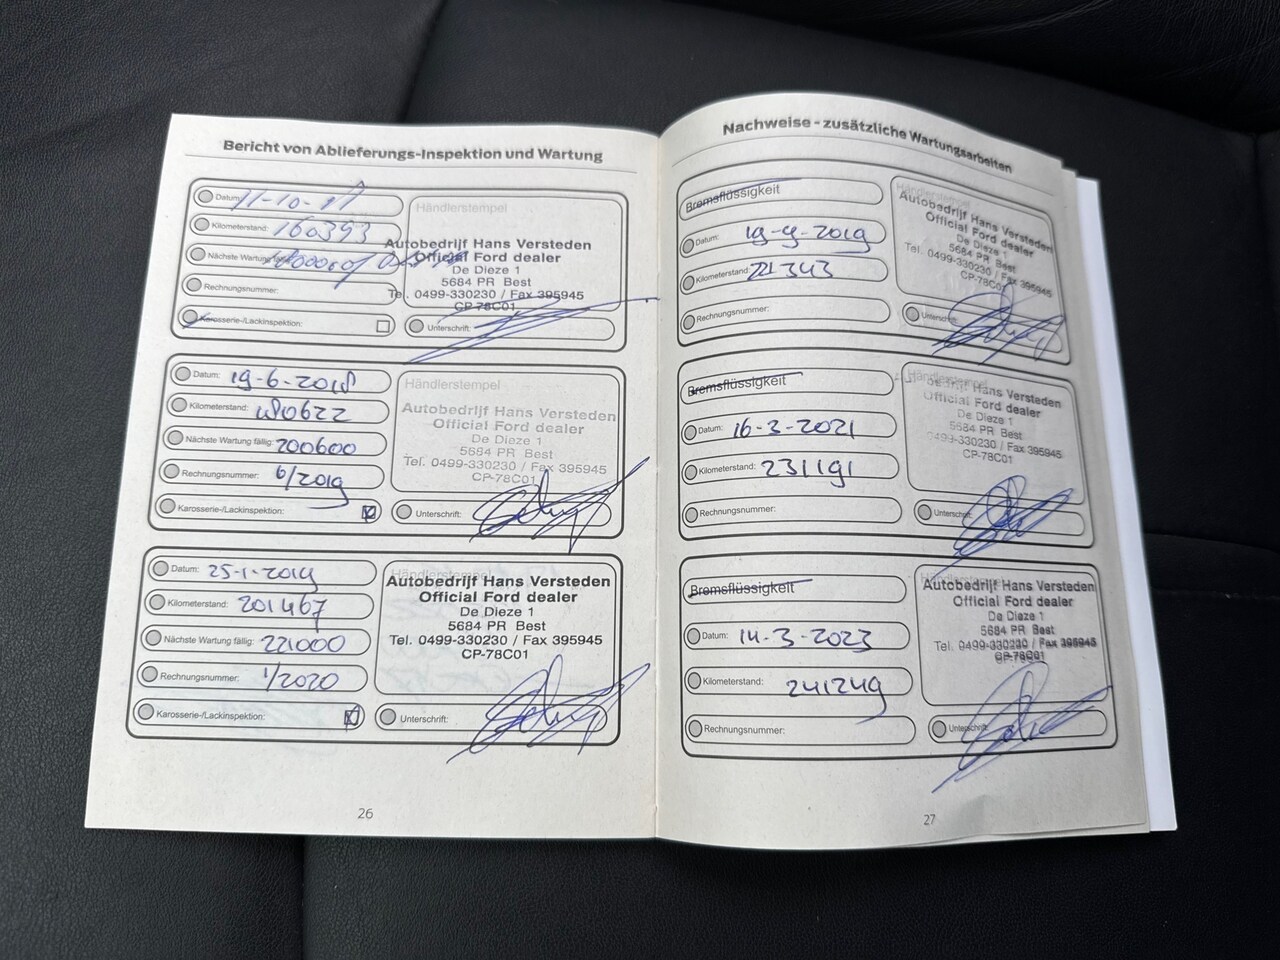 Bericht von Ablieferungs-Inspektion und Wartung
Datum:
Kilometerstand: 160393
Nächste Wartung fällig:
Rechnungsnummer:
Karosserie-/Lackinspektion:
Händlerstempel
Autobedrijf Hans Versteden
Official Ford dealer
De Dieze 1
5684 PR Best
Tel. 0499-330230 / Fax 395945
CP-78C01
Unterschrift:
Datum: 19-6-2018
Kilometerstand:
Nächste Wartung fällig: 200600
Rechnungsnummer: 6/2019
Karosserie-/Lackinspektion:
Händlerstempel
Autobedrijf Hans Versteden
Official Ford dealer
De Dieze 1
5684 PR Best
Tel. 0499-330230 / Fax 395945
CP-78C01
Unterschrift:
Datum: 25-1-2019
Kilometerstand: 201467
Nächste Wartung fällig: 221000
Rechnungsnummer: 1/2020
Karosserie-/Lackinspektion:
Händlerstempel
Autobedrijf Hans Versteden
Official Ford dealer
De Dieze 1
5684 PR Best
Tel. 0499-330230 / Fax 395945
CP-78C01
Unterschrift:
26
Nachweise - zusätzliche Wartungsarbeiten
Bremsflüssigkeit
Datum: 19-9-2019
Kilometerstand: 221343
Rechnungsnummer:
Händlerstempel
Autobedrijf Hans Versteden
Official Ford dealer
De Dieze 1
5684 PR Best
Tel. 0499-330230 / Fax 395945
CP-78C01
Unterschrift:
Bremsflüssigkeit
Datum: 16-3-2021
Kilometerstand: 231191
Rechnungsnummer:
Händlerstempel
Autobedrijf Hans Versteden
Official Ford dealer
De Dieze 1
5684 PR Best
Tel. 0499-330230 / Fax 395945
CP-78C01
Unterschrift:
Bremsflüssigkeit
Datum: 14-3-2023
Kilometerstand: 241249
Rechnungsnummer:
Händlerstempel
Autobedrijf Hans Versteden
Official Ford dealer
De Dieze 1
5684 PR Best
Tel. 0499-330230 / Fax 395945
CP-78C01
Unterschrift:
27